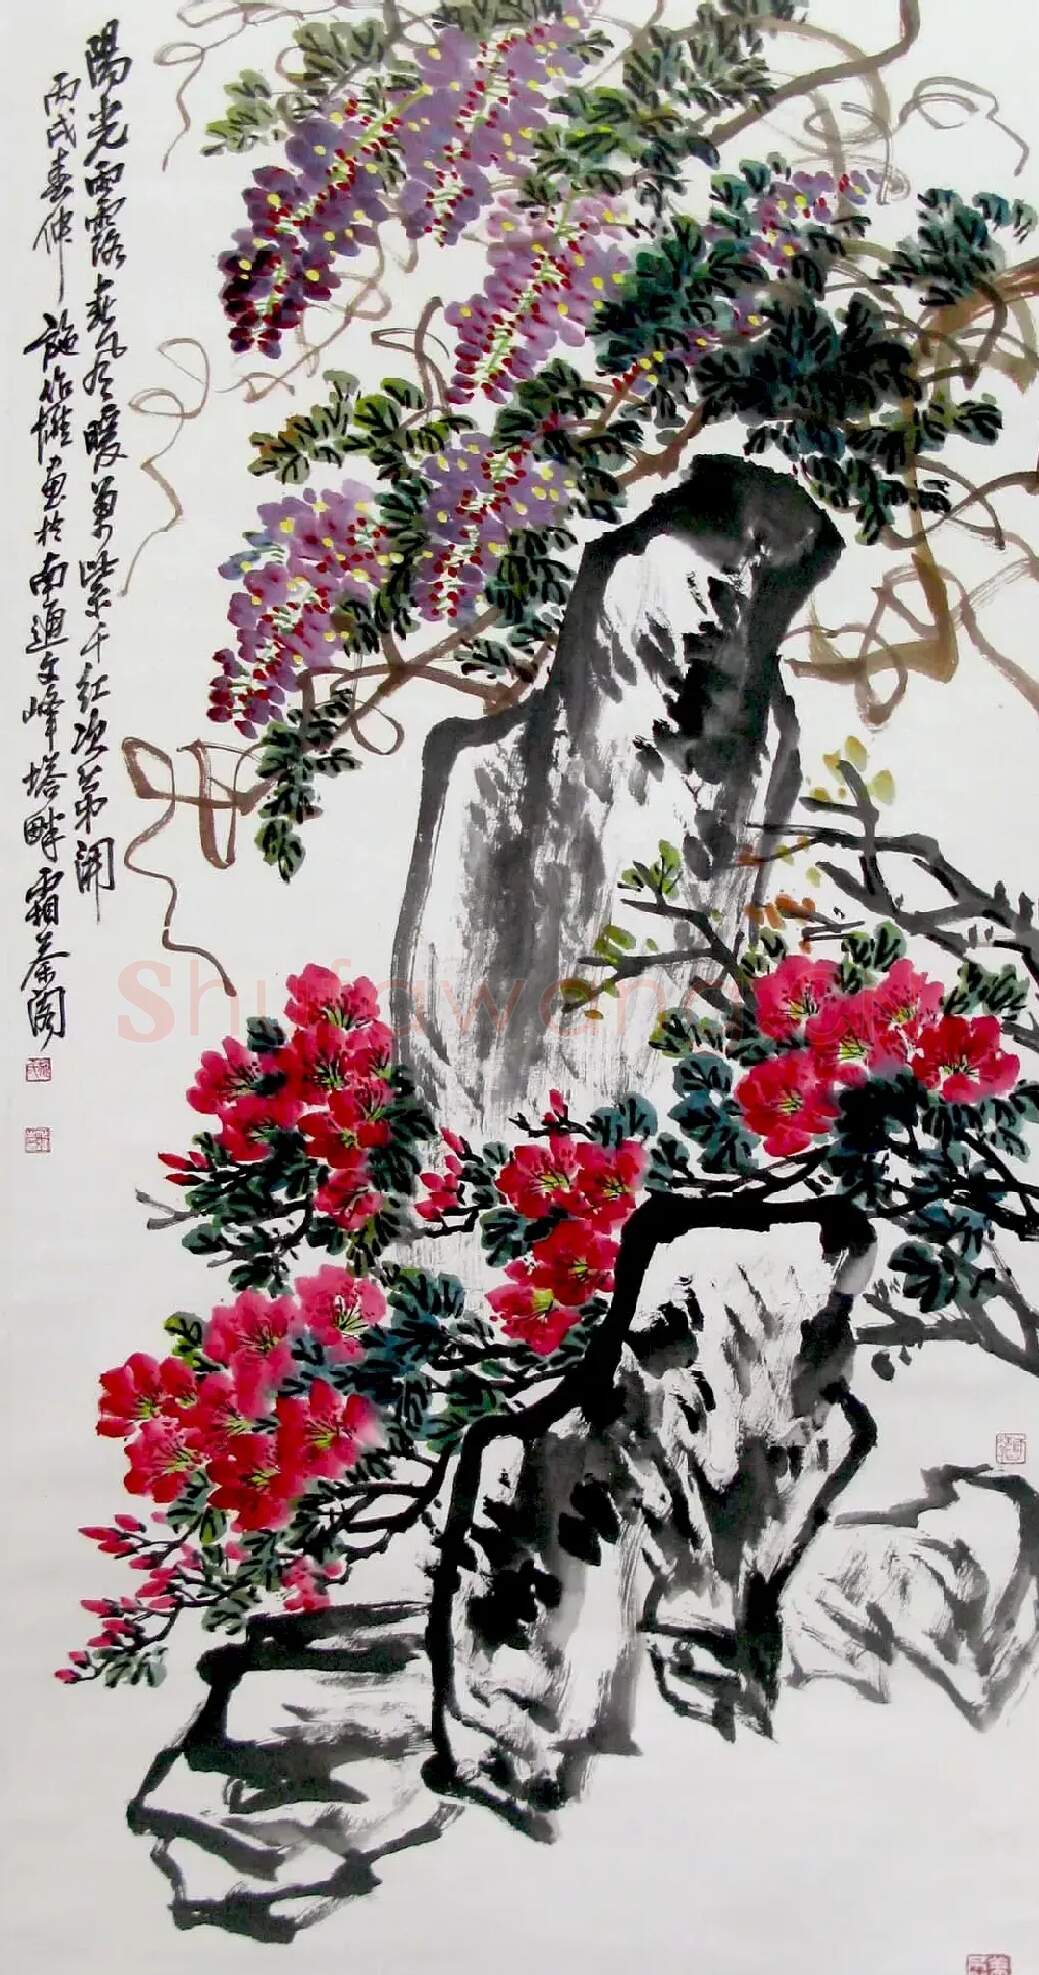 陽光雨露春風暖萬紫千紅次第開
丙戌春仲 施作雄画於南通文峰塔畔霜茶閣
Shufawang.cn